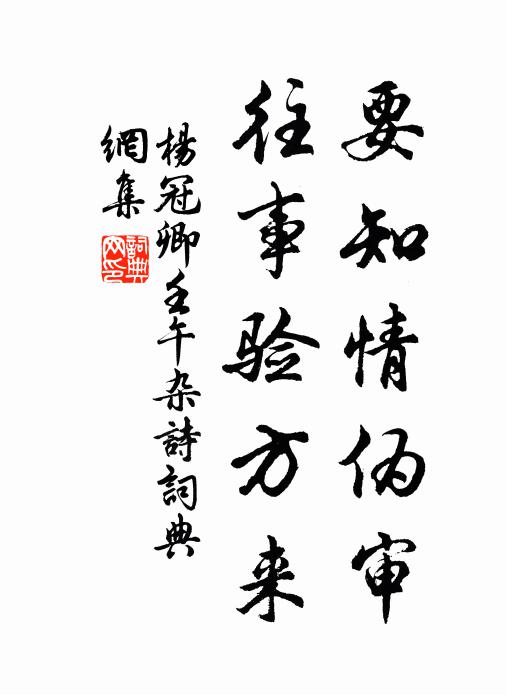 要知情伪审
往事验方来
楊冠卿壬午杂詩詞典
網集
詞典网印